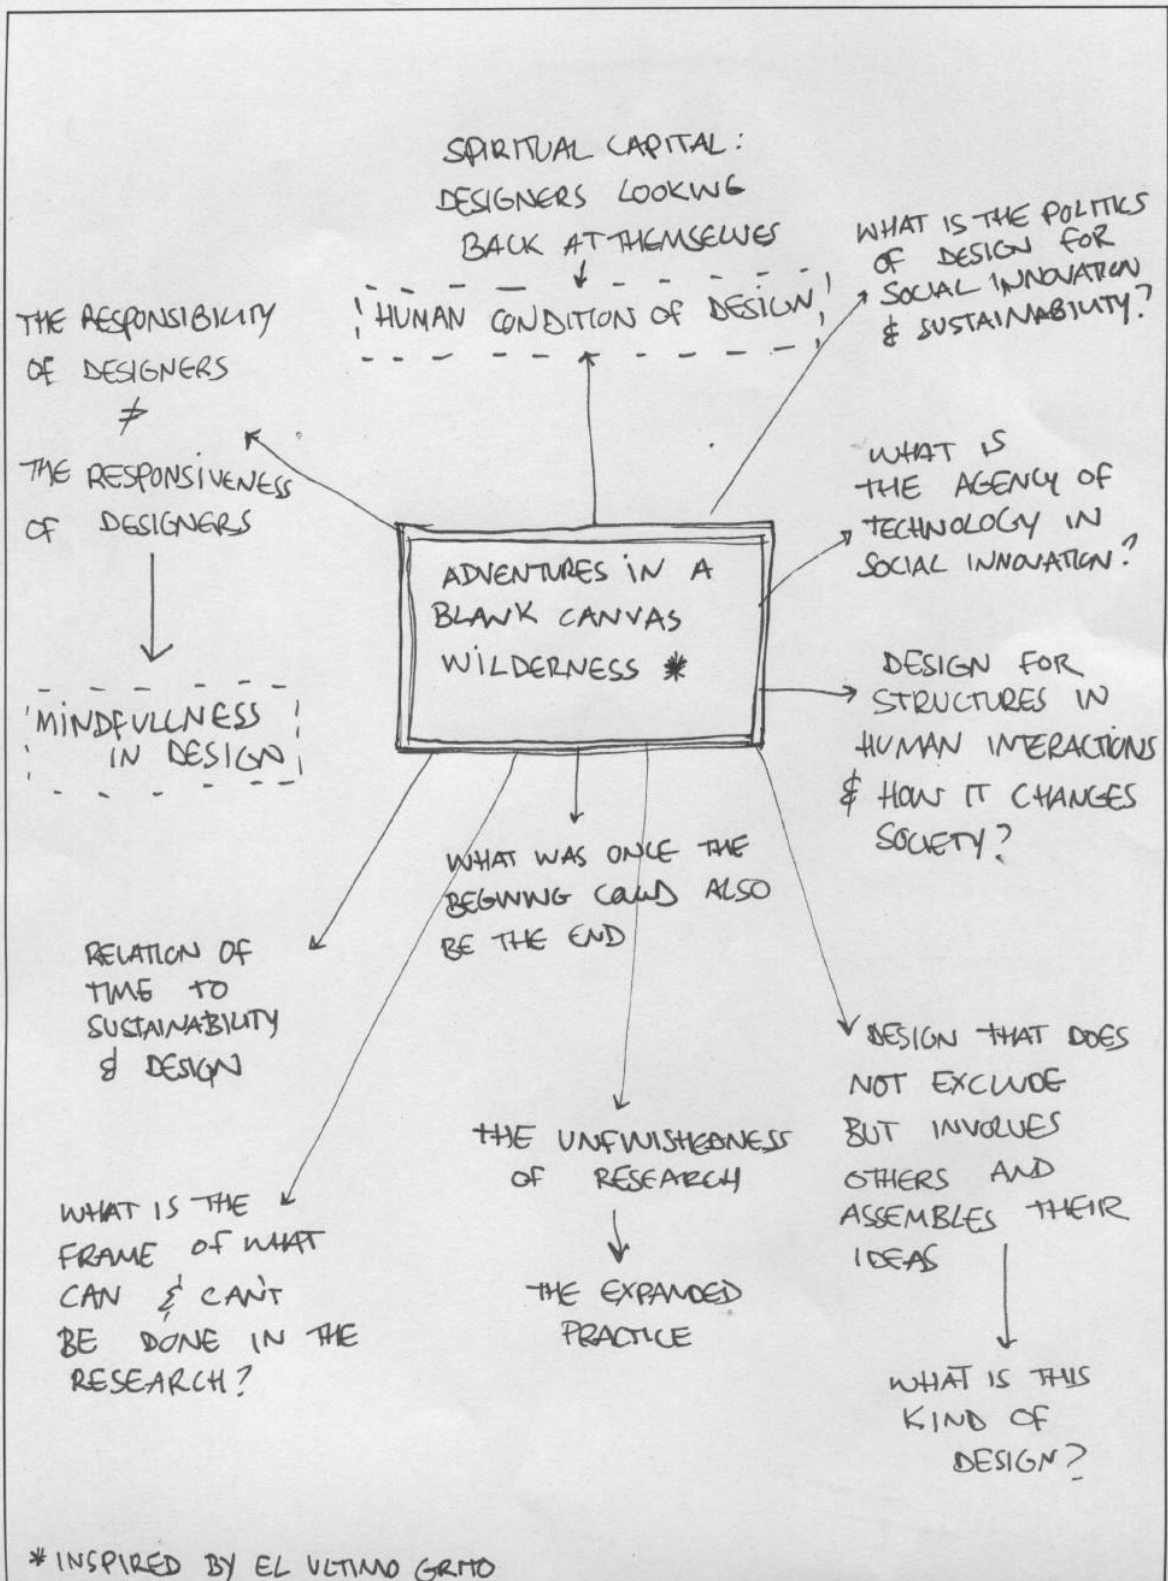 SPIRITUAL CAPITAL:
DESIGNERS LOOKING
BACK AT THEMSELVES
HUMAN CONDITION OF DESIGN
WHAT IS THE POLITICS
OF DESIGN FOR
SOCIAL INNOVATION
& SUSTAINABILITY?
THE RESPONSIBILITY
OF DESIGNERS
≠
THE RESPONSIVENESS
OF DESIGNERS
MINDFULLNESS
IN DESIGN
WHAT IS
THE AGENCY OF
TECHNOLOGY IN
SOCIAL INNOVATION?
ADVENTURES IN A
BLANK CANVAS
WILDERNESS *
DESIGN FOR
STRUCTURES IN
HUMAN INTERACTIONS
& HOW IT CHANGES
SOCIETY?
WHAT WAS ONCE THE
BEGINING COULD ALSO
BE THE END
RELATION OF
TIME TO
SUSTAINABILITY
& DESIGN
DESIGN THAT DOES
NOT EXCLUDE
BUT INVOLVES
OTHERS AND
ASSEMBLES THEIR
IDEAS
THE UNFINISHEDNESS
OF RESEARCH
THE EXPANDED
PRACTICE
WHAT IS THE
FRAME OF WHAT
CAN & CAN'T
BE DONE IN THE
RESEARCH?
WHAT IS THIS
KIND OF
DESIGN?
* INSPIRED BY EL ULTIMO GRITO